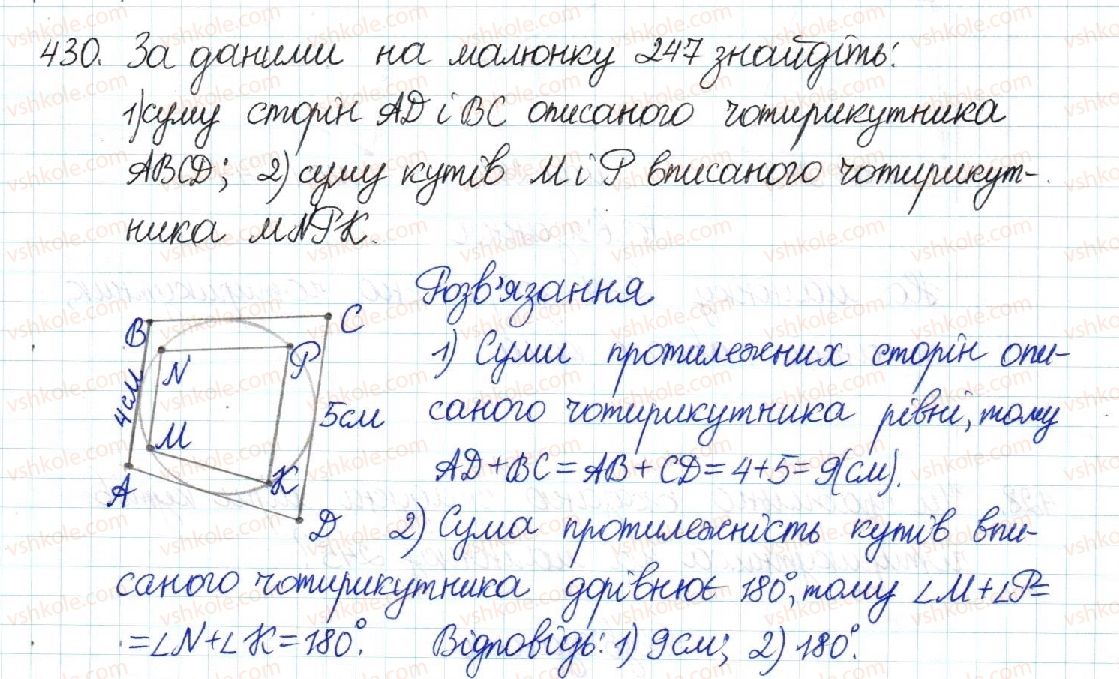 430. За даними на малюнку 247 знайдіть:
1) суму сторін AD і BC описаного чотирикутника
ABCD; 2) суму кутів M і P вписаного чотирикут-
ника MNPK.
Розв'язання
B
C
N
P
4см
5см
M
K
A
D
1) Суми протилежних сторін опи-
саного чотирикутника рівні, тому
AD+BC=AB+CD=4+5=9(см).
2) Сума протилежність кутів впи-
саного чотирикутника дорівнює 180°, тому ∠M+∠P=
=∠N+∠K=180°. Відповідь: 1) 9см; 2) 180°.
vshkole.com